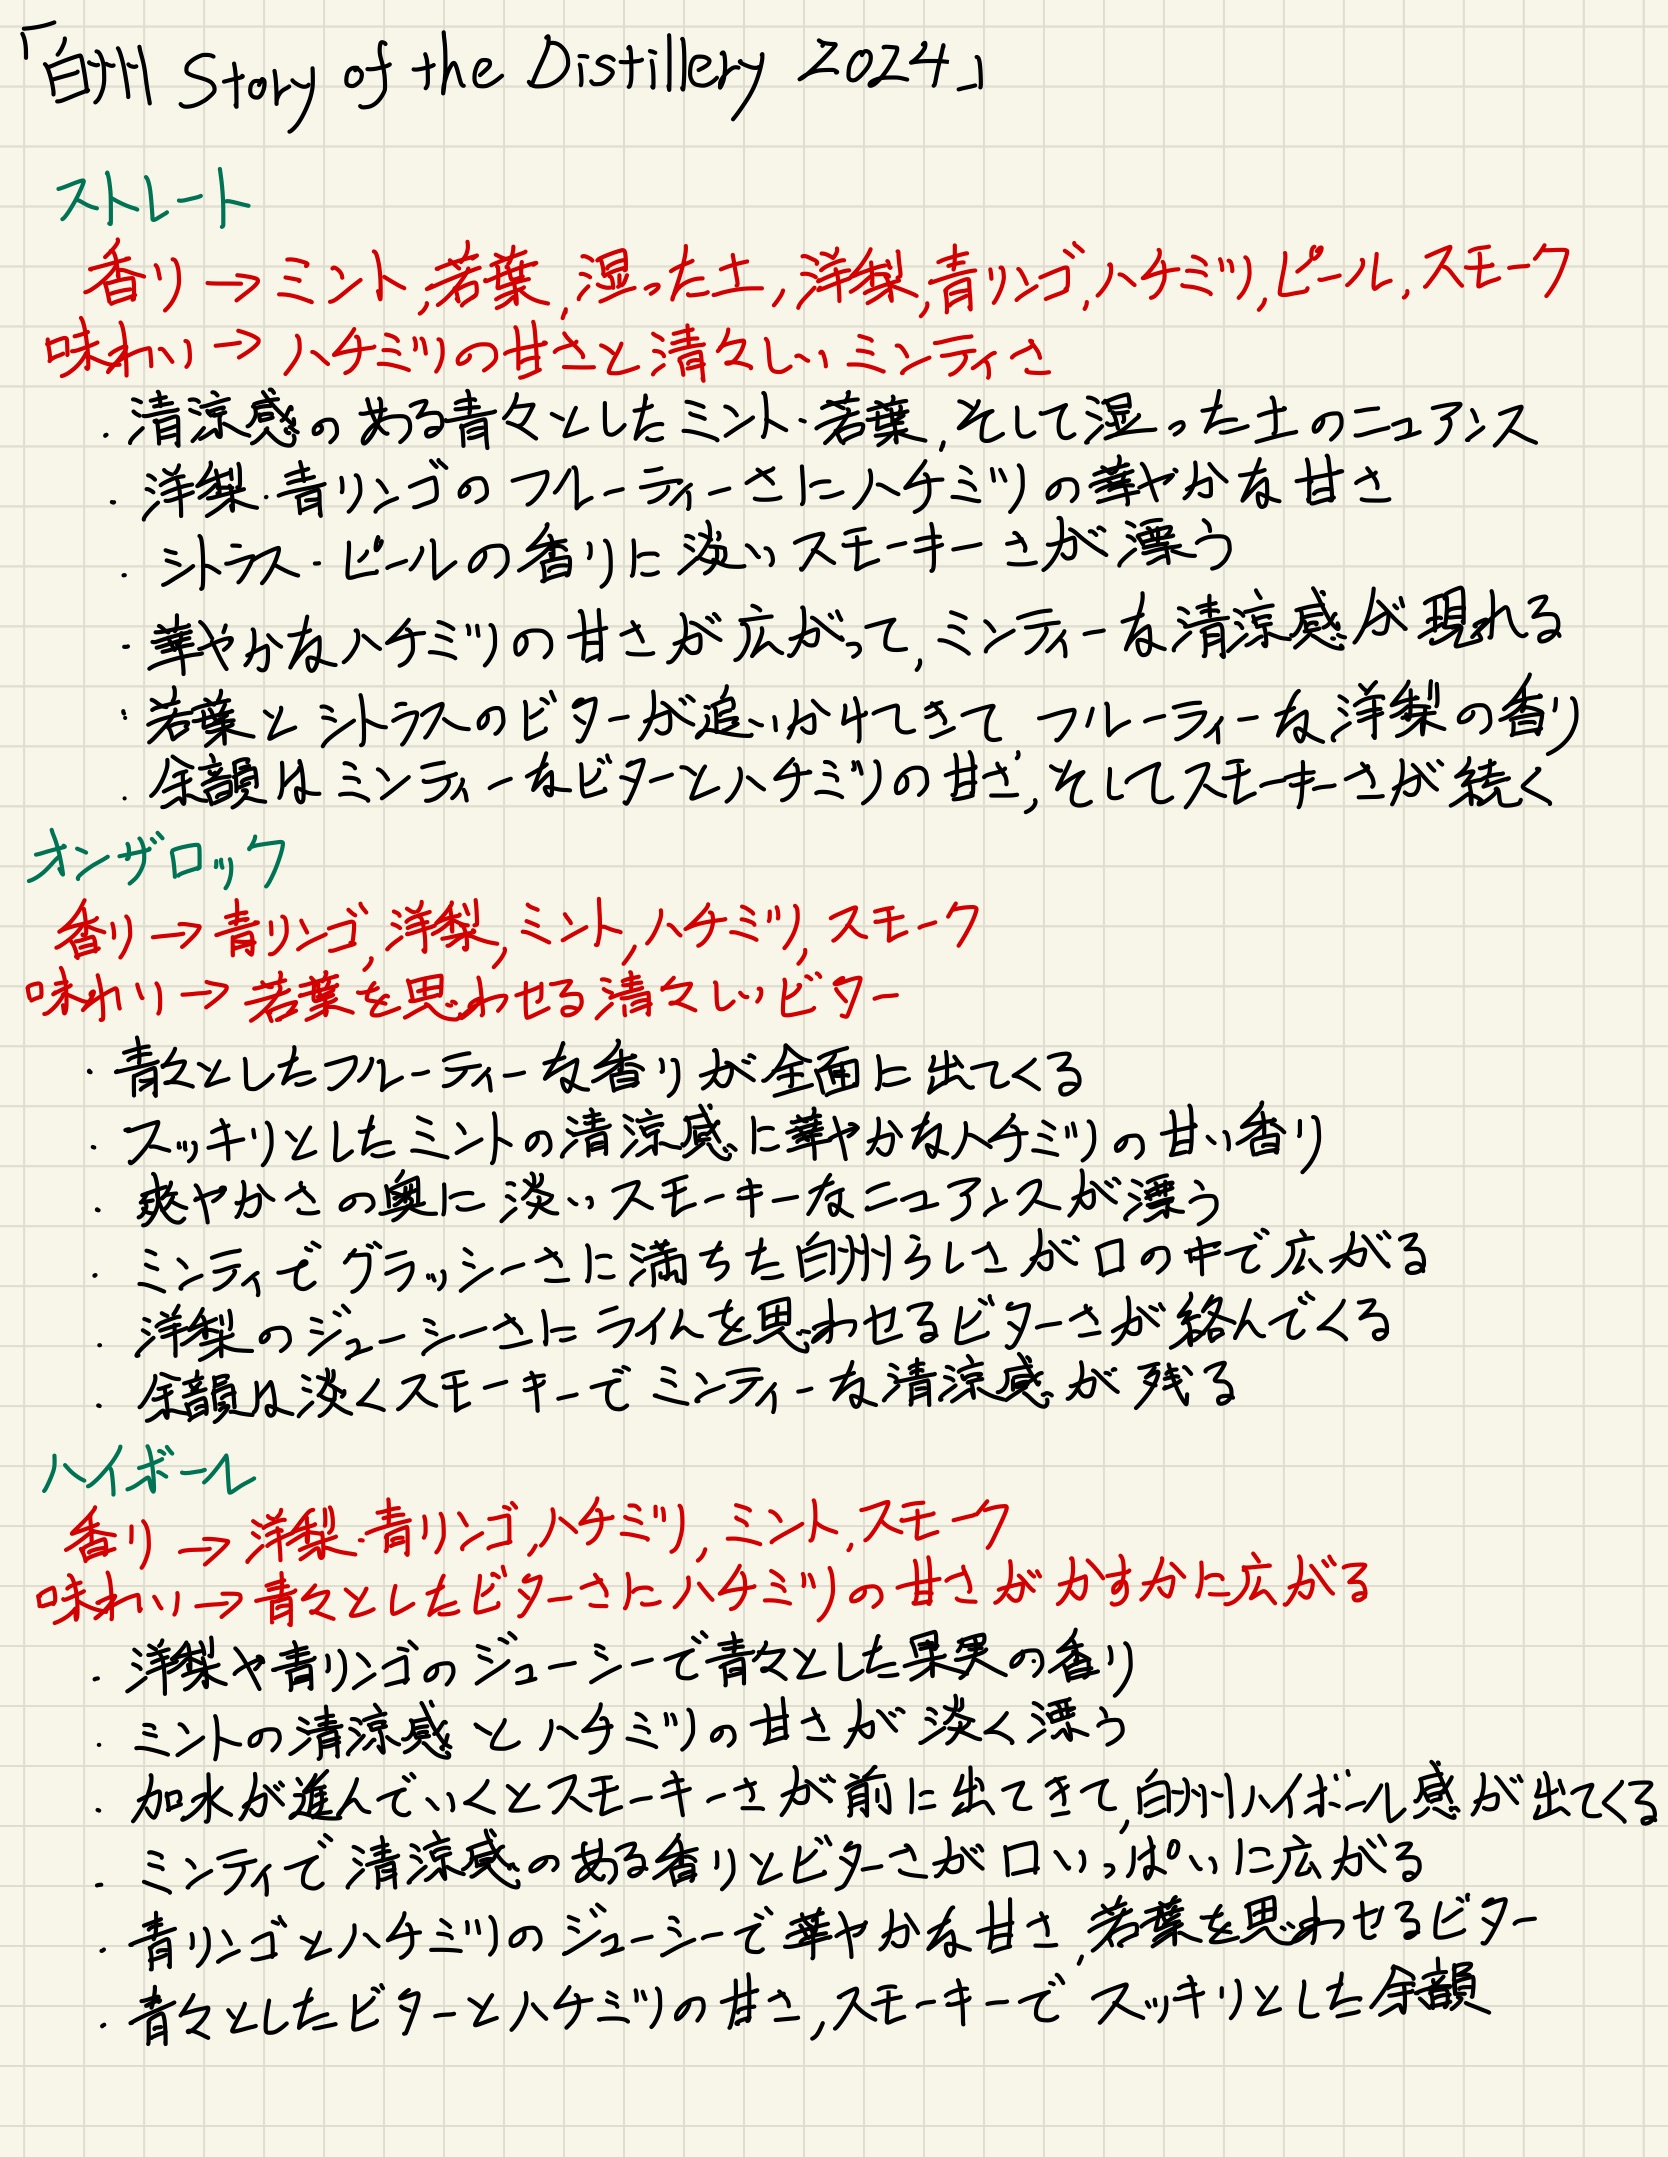 「白州 Story of the Distillery 2024」
ストレート
香り→ミント,若葉,湿った土,洋梨,青リンゴ,ハチミツ,ピール,スモーク
味わい→ハチミツの甘さと清々しいミンティさ
・清涼感のある青々としたミント・若葉,そして湿った土のニュアンス
・洋梨・青リンゴのフルーティーさにハチミツの華やかな甘さ
・シトラス・ピールの香りに淡いスモーキーさが漂う
・華やかなハチミツの甘さが広がって,ミンティーな清涼感が現れる
・若葉とシトラスのビターが追いかけてきて,フルーティーな洋梨の香り
・余韻はミンティーなビターとハチミツの甘さ,そしてスモーキーさが続く
オンザロック
香り→青リンゴ,洋梨,ミント,ハチミツ,スモーク
味わい→若葉を思わせる清々しいビター
・青々としたフルーティーな香りが全面に出てくる
・スッキリとしたミントの清涼感に華やかなハチミツの甘い香り
・爽やかさの奥に淡いスモーキーなニュアンスが漂う
・ミンティでグラッシーさに満ちた白州らしさが口の中で広がる
・洋梨のジューシーさにライムを思わせるビターさが絡んでくる
・余韻は淡くスモーキーでミンティーな清涼感が残る
ハイボール
香り→洋梨・青リンゴ,ハチミツ,ミント,スモーク
味わい→青々としたビターさにハチミツの甘さがかすかに広がる
・洋梨や青リンゴのジューシーで青々とした果実の香り
・ミントの清涼感とハチミツの甘さが淡く漂う
・加水が進んでいくとスモーキーさが前に出てきて,白州ハイボール感が出てくる
・ミンティで清涼感のある香りとビターさが口いっぱいに広がる
・青リンゴとハチミツのジューシーで華やかな甘さ,若葉を思わせるビター
・青々としたビターとハチミツの甘さ,スモーキーでスッキリとした余韻